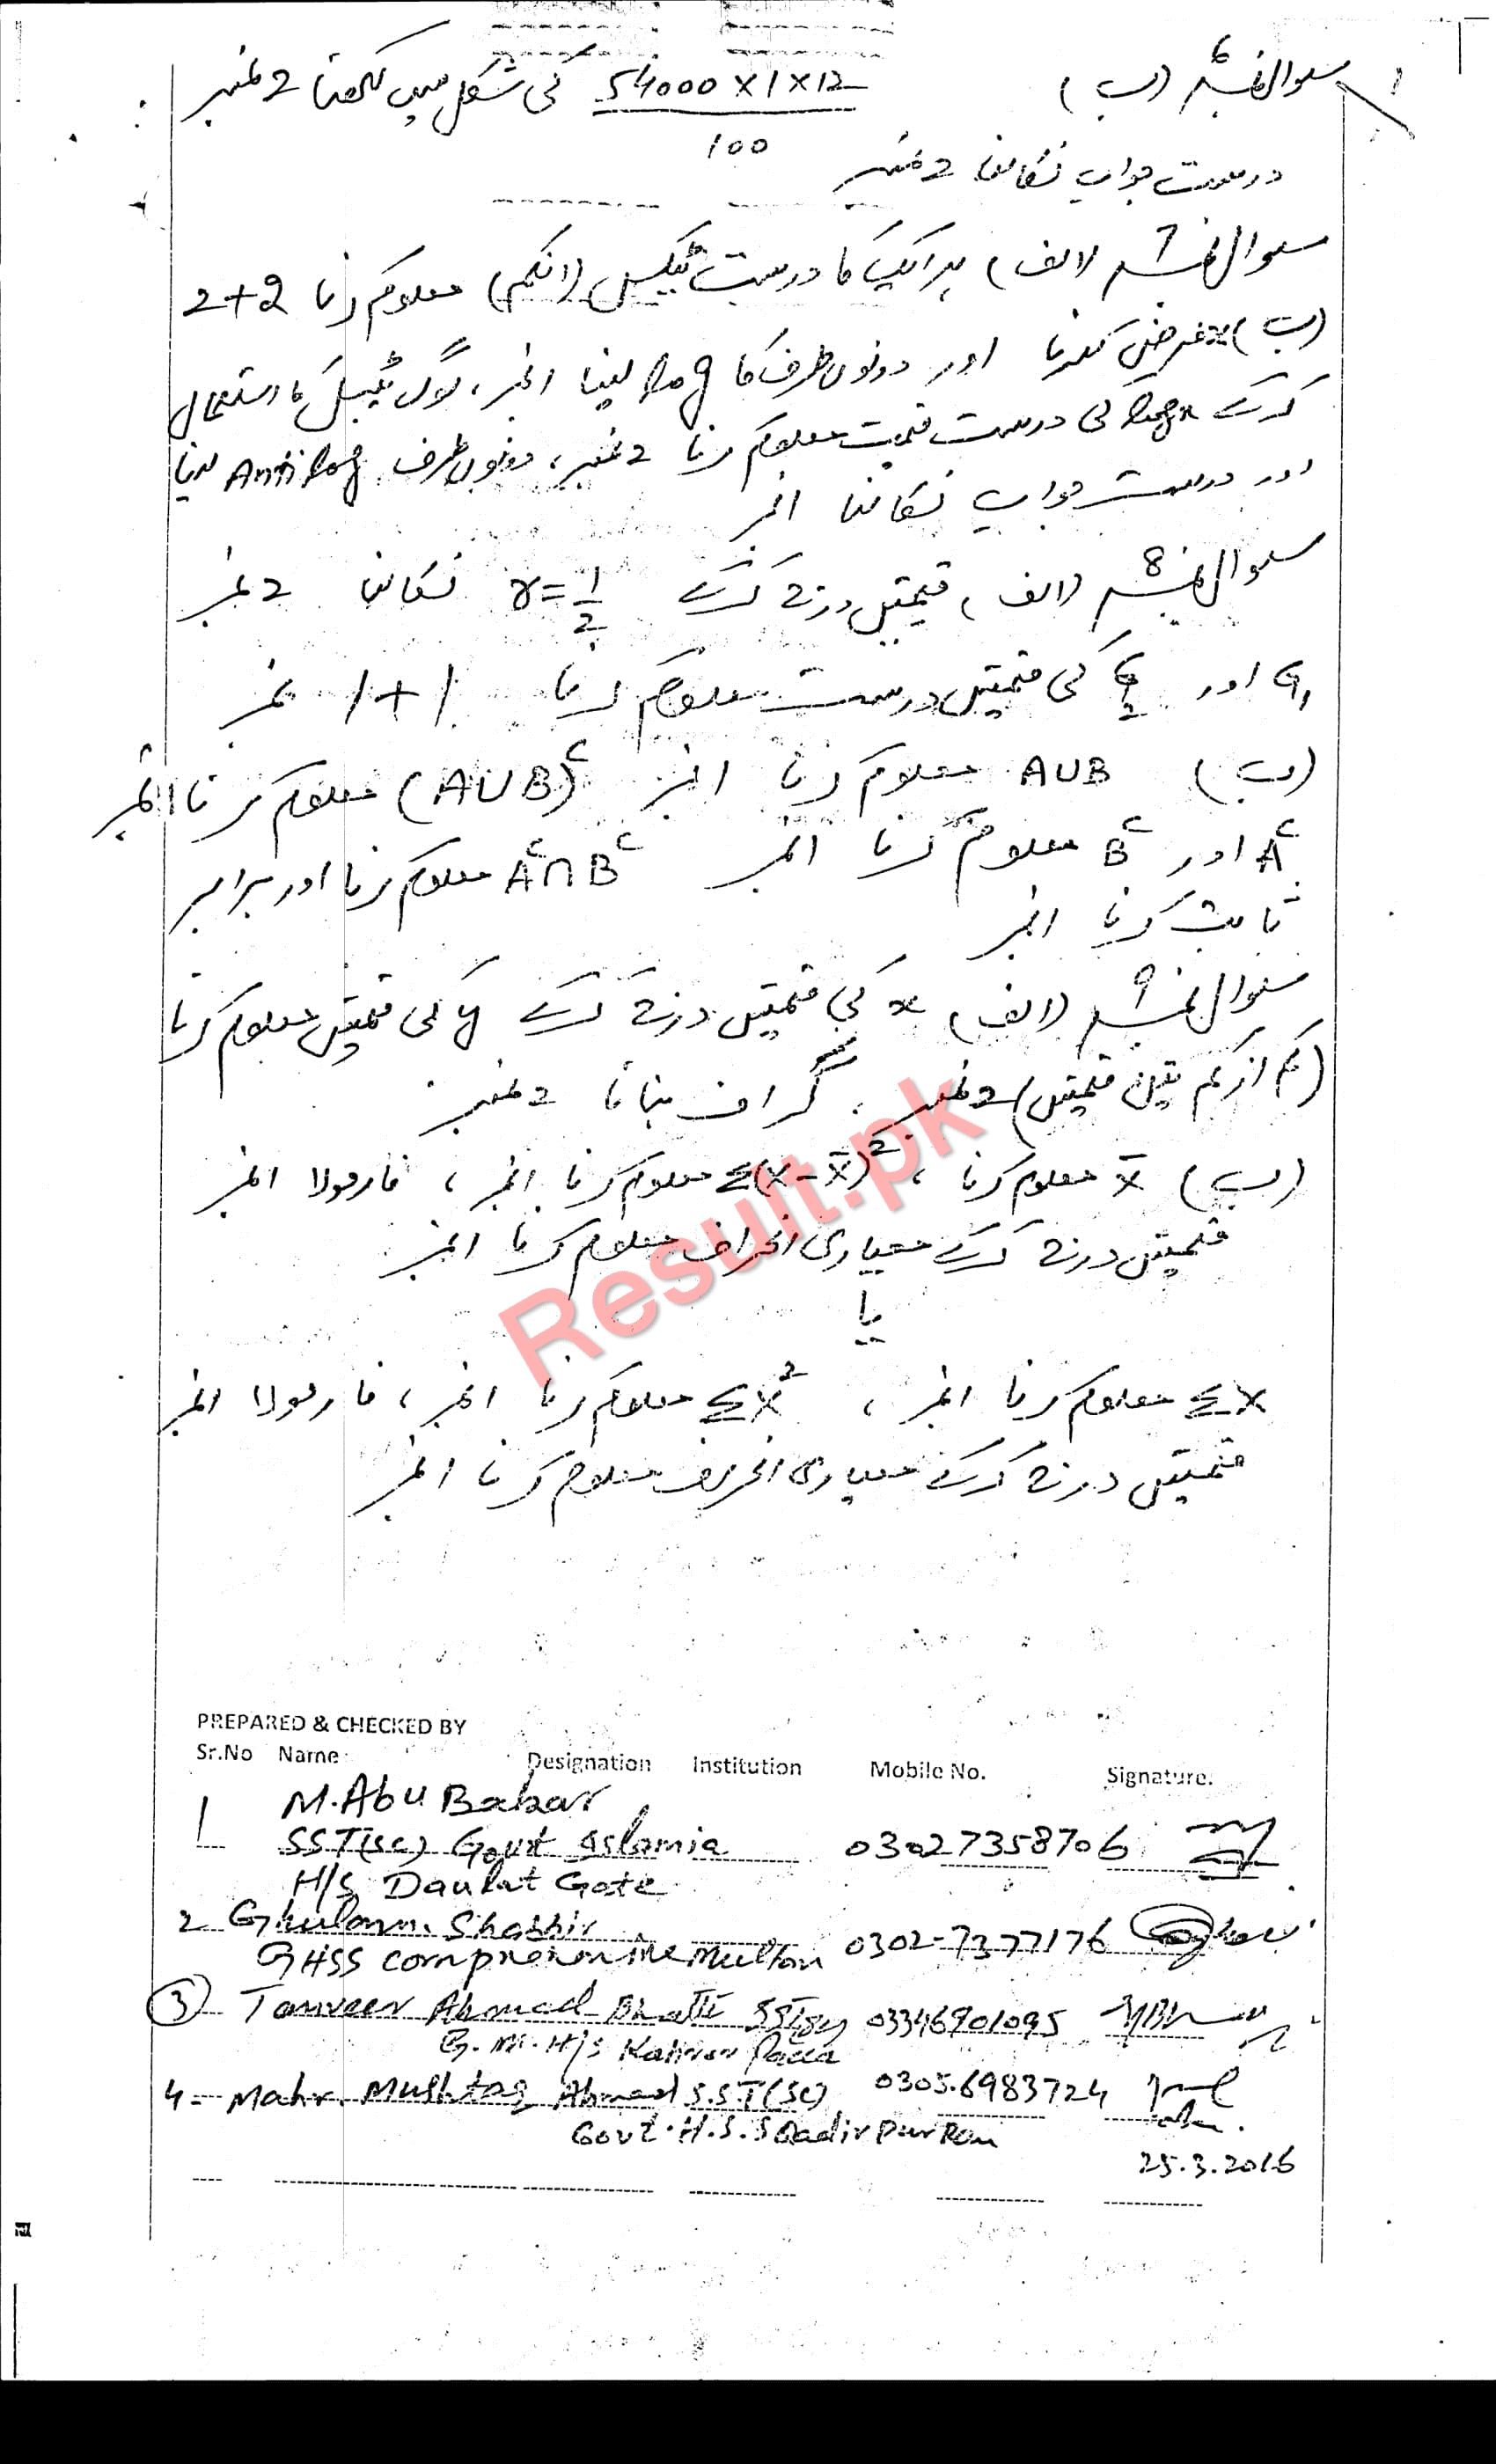 سوال نمبر 6 (ب) 54000 x 1 x 12 / 100 کی شکل میں لکھنا 2 نمبر
درست جواب نکالنا 2 نمبر
سوال نمبر 7 (الف) ہر ایک کا درست ٹیکس (انکم) معلوم کرنا 2+2
(ب) x فرض کرنا اور دونوں طرف کا log لینا 1 نمبر، لوگ ٹیبل کا استعمال
کرکے logx کی درست قیمت معلوم کرنا 2 نمبر، دونوں طرف Anti log لینا
اور درست جواب نکالنا 1 نمبر
سوال نمبر 8 (الف) قیمتیں درج کرکے r = 1/2 نکالنا 2 نمبر
G1 اور G2 کی قیمتیں درست معلوم کرنا 1+1 نمبر
(ب) AUB معلوم کرنا 1 نمبر (AUB)ᶜ معلوم کرنا 1 نمبر
Aᶜ اور Bᶜ معلوم کرنا 1 نمبر Aᶜ∩Bᶜ معلوم کرنا اور برابر
ثابت کرنا 1 نمبر
سوال نمبر 9 (الف) x کی قیمتیں درج کرکے y کی قیمتیں معلوم کرنا
(کم از کم تین قیمتیں) 2 نمبر، گراف بنانا 2 نمبر
(ب) x̄ معلوم کرنا، Σ(x-x̄)² معلوم کرنا 1 نمبر، فارمولا 1 نمبر
قیمتیں درج کرکے معیاری انحراف معلوم کرنا 1 نمبر
یا
Σx معلوم کرنا 1 نمبر، Σx² معلوم کرنا 1 نمبر، فارمولا 1 نمبر
قیمتیں درج کرکے معیاری انحراف معلوم کرنا 1 نمبر
Result.pk
PREPARED & CHECKED BY
Sr.No Name Designation Institution Mobile No. Signature.
1 M. Abu Bakar
SST(sc) Govt Islamia 03027358706
H/S Daulat Gate
2 Ghulam Shabbir
GHSS comprehensive Multan 0302-7377176
3 Tanveer Ahmad Bhatti 03346901095
G. M. H/S Kahror Pacca
4- Mahr Mushtaq Ahmad S.S.T(Sc) 0305.6983724
Govt. H.S.S Qadir Pur Ran
25.3.2016